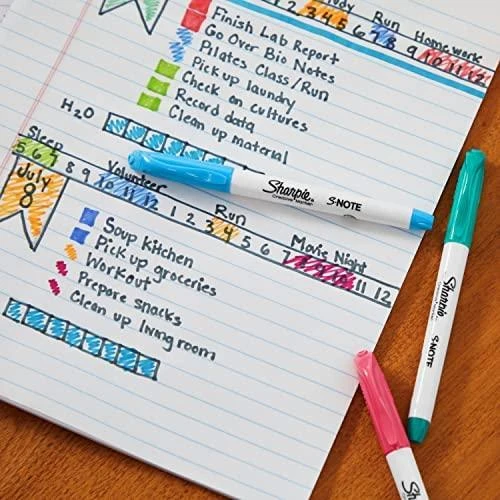 Study Run Homework
3 4 5 6 7 8 9 10 11 12
Finish Lab Report
Go Over Bio Notes
Pilates Class/Run
Pick up laundry
Check on cultures
Record data
Clean up material
H2O
Sleep Volunteer Run Movie Night
5 6 7 8 9 10 11 12 1 2 3 4 5 6 7 8 9 10 11 12
July
8
Soup Kitchen
Pick up groceries
Workout
Prepare snacks
Clean up living room
Sharpie
Creative Marker
S·NOTE
Sharpie
S·NOTE
Sharpie